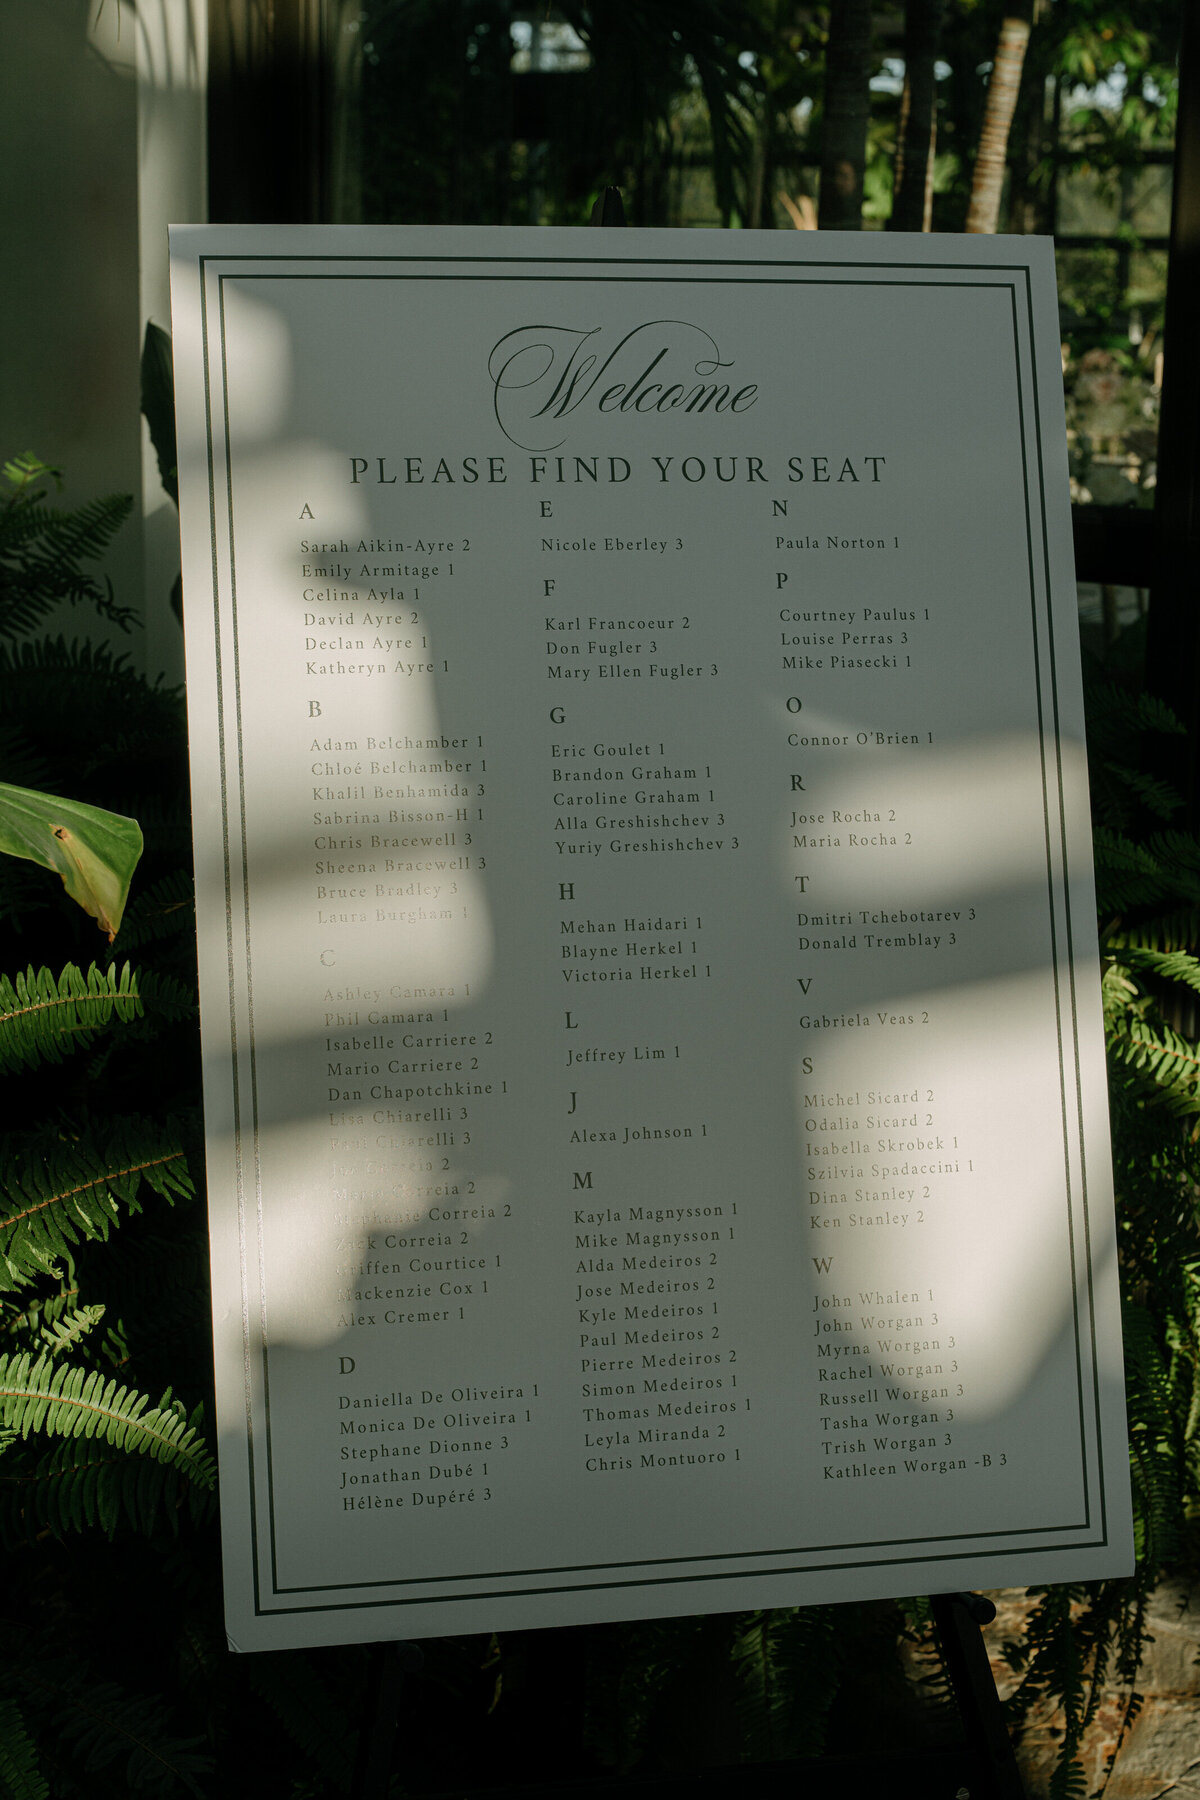 Welcome
PLEASE FIND YOUR SEAT
A
Sarah Aikin-Ayre 2
Emily Armitage 1
Celina Ayla 1
David Ayre 2
Declan Ayre 1
Katheryn Ayre 1
B
Adam Belchamber 1
Chloé Belchamber 1
Khalil Benhamida 3
Sabrina Bisson-H 1
Chris Bracewell 3
Sheena Bracewell 3
Bruce Bradley 3
Laura Burgham 1
C
Ashley Camara 1
Phil Camara 1
Isabelle Carriere 2
Mario Carriere 2
Dan Chapotchkine 1
Lisa Chiarelli 3
Paul Chiarelli 3
Correia 2
Correia 2
Stephanie Correia 2
Zack Correia 2
Griffen Courtice 1
Mackenzie Cox 1
Alex Cremer 1
D
Daniella De Oliveira 1
Monica De Oliveira 1
Stephane Dionne 3
Jonathan Dubé 1
Hélène Dupéré 3
E
Nicole Eberley 3
F
Karl Francoeur 2
Don Fugler 3
Mary Ellen Fugler 3
G
Eric Goulet 1
Brandon Graham 1
Caroline Graham 1
Alla Greshishchev 3
Yuriy Greshishchev 3
H
Mehan Haidari 1
Blayne Herkel 1
Victoria Herkel 1
L
Jeffrey Lim 1
J
Alexa Johnson 1
M
Kayla Magnysson 1
Mike Magnysson 1
Alda Medeiros 2
Jose Medeiros 2
Kyle Medeiros 1
Paul Medeiros 2
Pierre Medeiros 2
Simon Medeiros 1
Thomas Medeiros 1
Leyla Miranda 2
Chris Montuoro 1
N
Paula Norton 1
P
Courtney Paulus 1
Louise Perras 3
Mike Piasecki 1
O
Connor O'Brien 1
R
Jose Rocha 2
Maria Rocha 2
T
Dmitri Tchebotarev 3
Donald Tremblay 3
V
Gabriela Veas 2
S
Michel Sicard 2
Odalia Sicard 2
Isabella Skrobek 1
Szilvia Spadaccini 1
Dina Stanley 2
Ken Stanley 2
W
John Whalen 1
John Worgan 3
Myrna Worgan 3
Rachel Worgan 3
Russell Worgan 3
Tasha Worgan 3
Trish Worgan 3
Kathleen Worgan -B 3